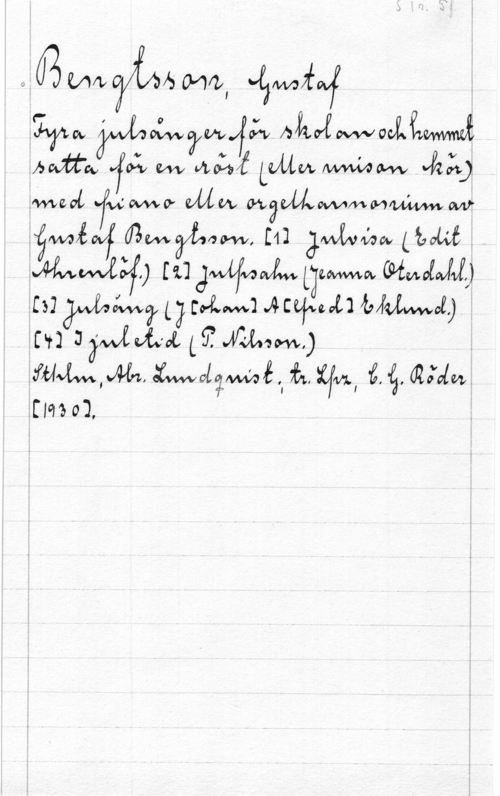 Bengtsson, Gustaf
Fyra julsånger för skolan och hemmet
satta för en röst (eller unison kör)
med piano eller orgelharmonium av
Gustaf Bengtsson. [1] Julvisa (Edit
Ahrenlöf.) [2] Julpsalm (Jeanna Oterdahl.)
[3] Julsång (J[ohan] A[lfred] Eklund.)
[4] I juletid (P. Nilsson.)
Sthlm, Abr. Lundquist, tr. Lpz, C. G. Röder
[1930].